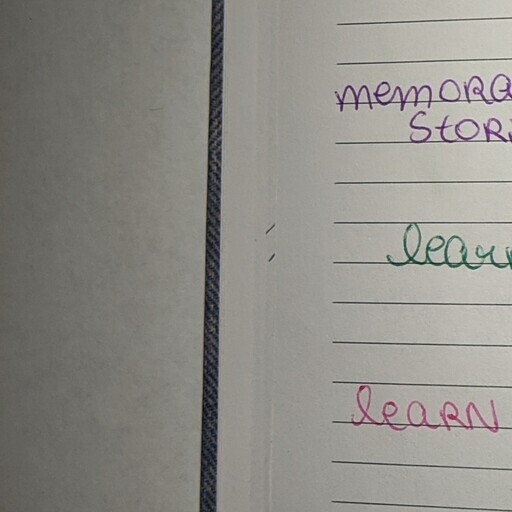 memORA
StORi
learn
leARN